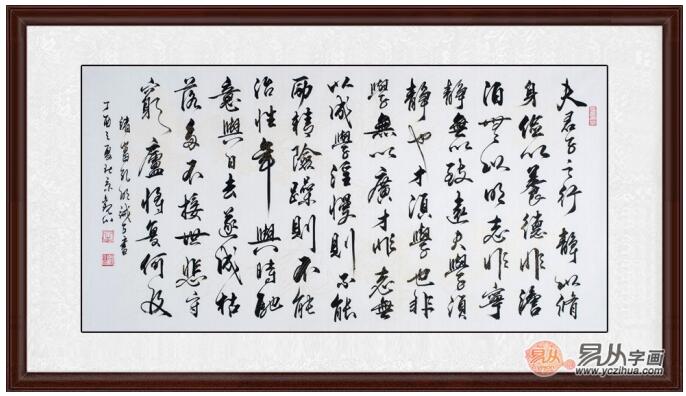 夫君子之行静以脩
身儉以養德非澹
泊無以明志非寧
静無以致遠夫學須
静也才須學也非
學無以廣才非志無
以成學淫慢則不能
勵精險躁則不能
治性年與時馳
意與日去遂成枯
落多不接世悲守
窮廬將復何及
諸葛孔明誡子書
丁酉之夏於京
易从
易从字画
www.yczihua.com